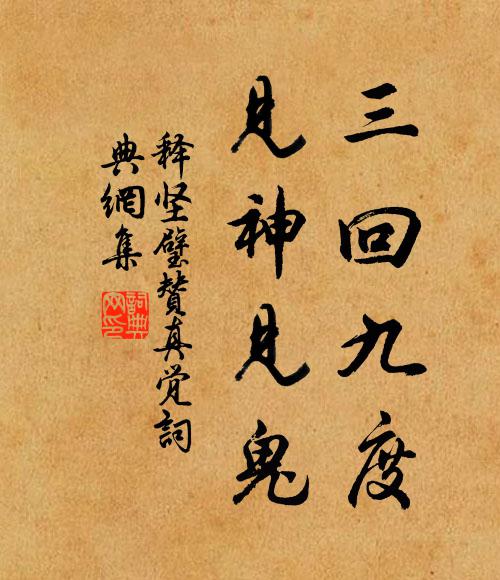 三回九度
见神见鬼
释坚璧赞真觉詞
典網集
詞典网印